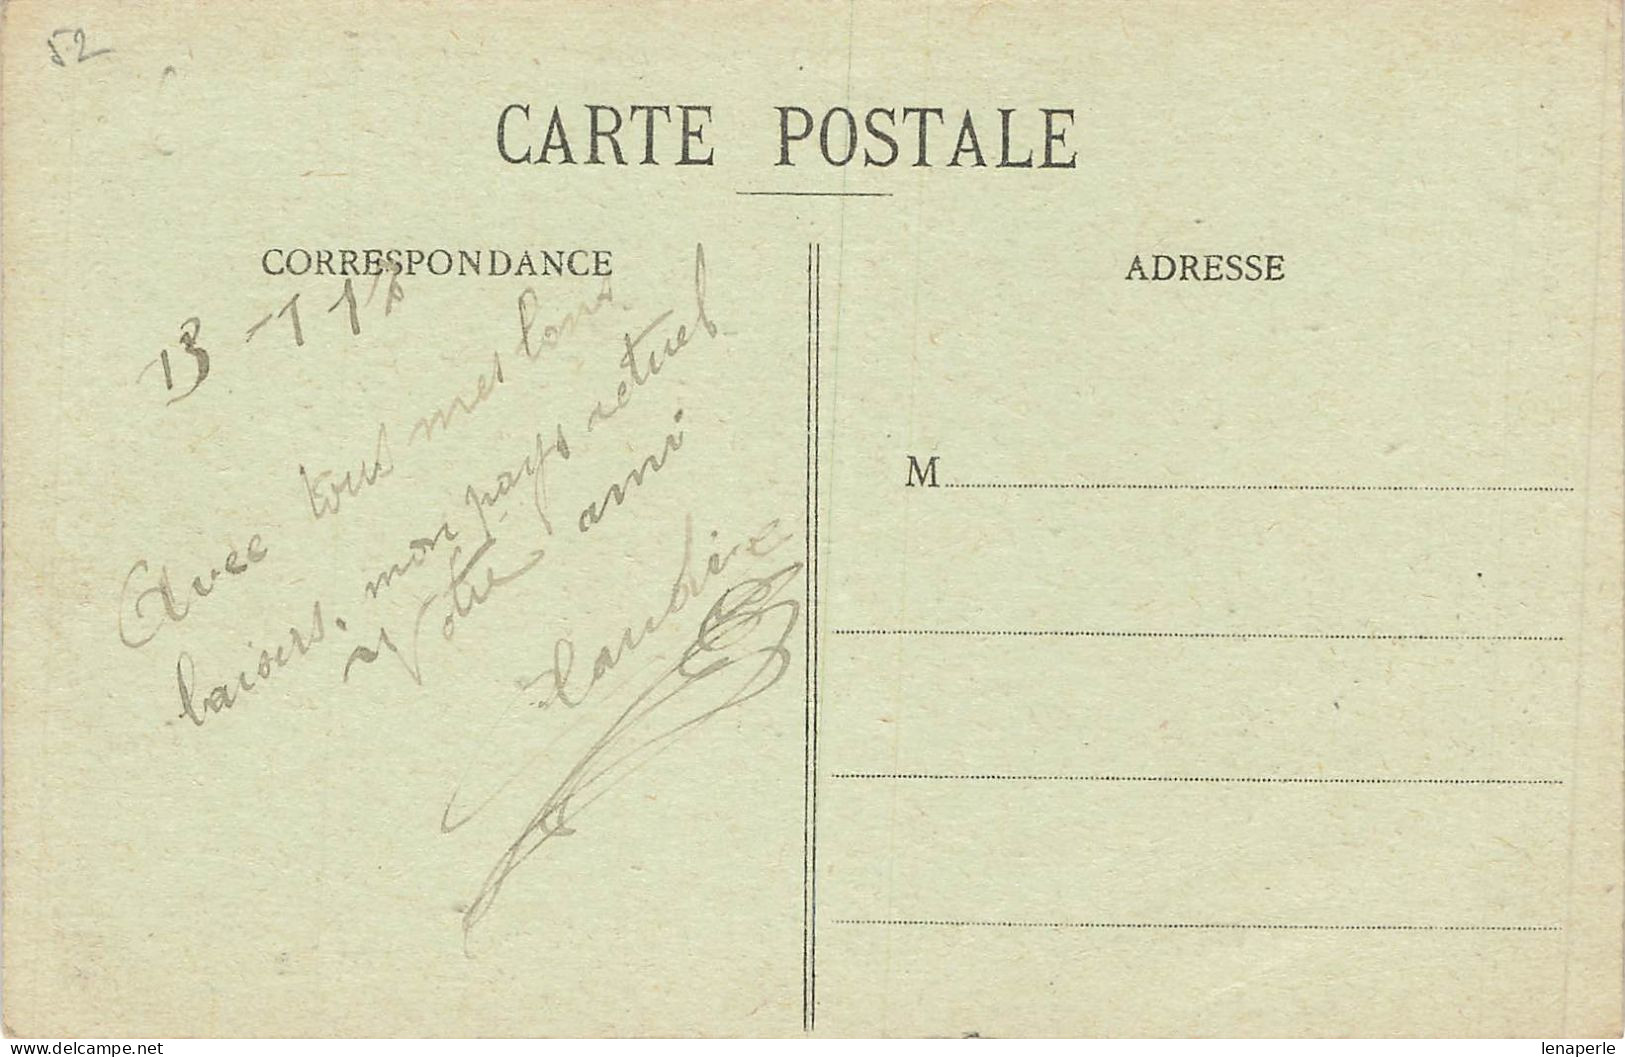 52
CARTE POSTALE
CORRESPONDANCE
ADRESSE
13 - 1 18
Avec tous mes bons
baisers, mon pays actuel
Votre ami
M
lenaperle